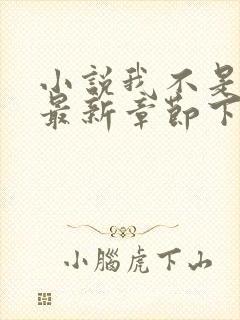 小說我不是
最新章節下
小腦虎下山